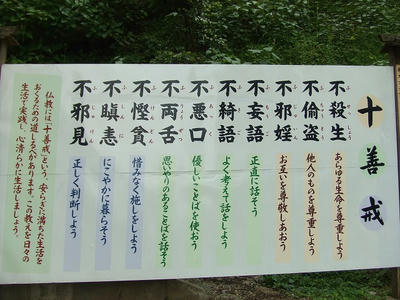 十善戒
不殺生
あらゆる生命を尊重しよう
不偸盗
他人のものを尊重しよう
不邪婬
お互いを尊敬しあおう
不妄語
正直に話そう
不綺語
よく考えて話をしよう
不悪口
優しいことばを使おう
不両舌
思いやりのあることばを話そう
不慳貪
惜みなく施しをしよう
不瞋恚
にこやかに暮らそう
不邪見
正しく判断しよう
仏教には「十善戒」という、安らぎに満ちた生活を
おくるための道しるべがあります。この教えを日々の
生活で実践し、心清らかに生活しましょう。